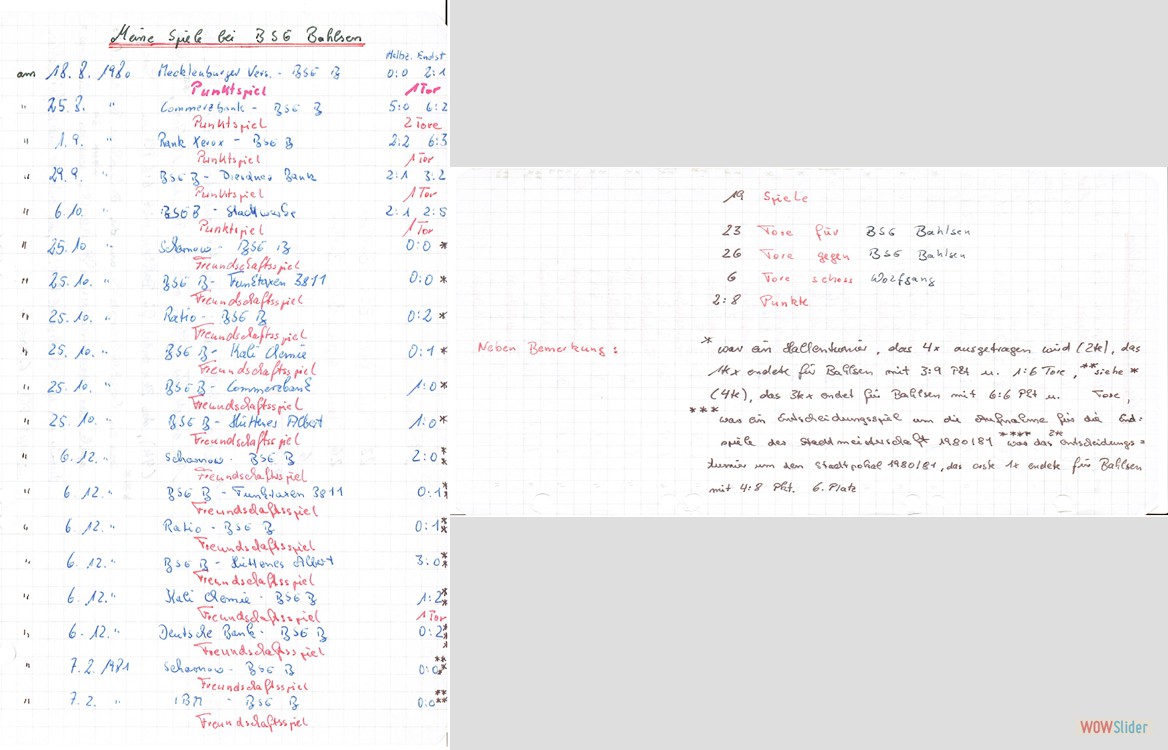 Meine Spiele bei BSG Bahlsen
Halbz. Endst
am 18. 8. 1980 Mecklenburger Vers. - BSG B 0:0 2:1
Punktspiel 1 Tor
" 25. 8. " Commerzbank - BSG B 5:0 6:2
Punktspiel 2 Tore
" 1. 9. " Rank Xerox - BSG B 2:2 6:3
Punktspiel 1 Tor
" 29. 9. " BSG B - Dresdner Bank 2:1 3:2
Punktspiel 1 Tor
" 6. 10. " BSG B - Stadtwerke 2:1 2:5
Punktspiel 1 Tor
" 25. 10 " Scharnow - BSG B 0:0 *
Freundschaftsspiel
" 25. 10. " BSG B - Funktaxen 3811 0:0 *
Freundschaftsspiel
" 25. 10. " Ratio - BSG B 0:2 *
Freundschaftsspiel
" 25. 10. " BSG B - Kali Chemie 0:1 *
Freundschaftsspiel
" 25. 10. " BSG B - Commerzbank 1:0 *
Freundschaftsspiel
" 25. 10 " BSG B - Hüttenes Albert 1:0 *
Freundschaftsspiel
" 6. 12. " Scharnow - BSG B 2:0 **
Freundschaftsspiel
" 6. 12. " BSG B - Funktaxen 3811 0:1 **
Freundschaftsspiel
" 6. 12. " Ratio - BSG B 0:1 **
Freundschaftsspiel
" 6. 12. " BSG B - Hüttenes Albert 3:0 **
Freundschaftsspiel
" 6. 12. " Kali Chemie - BSG B 1:2 **
Freundschaftsspiel 1 Tor
" 6. 12. " Deutsche Bank - BSG B 0:2
Freundschaftsspiel
" 7. 2. 1981 Scharnow - BSG B 0:0
Freundschaftsspiel
" 7. 2. " IBM - BSG B 0:0 ****
Freundschaftsspiel
19 Spiele
23 Tore für BSG Bahlsen
26 Tore gegen BSG Bahlsen
6 Tore schoss Wolfgang
2:8 Punkte
Neben Bemerkung : * war ein Hallenturnier, das 4x ausgetragen wird (2te), das
1te x endete für Bahlsen mit 3:9 Pkt u. 1:6 Tore, ** siehe *
(4te), das 3te x endet für Bahlsen mit 6:6 Pkt u. Tore,
*** was ein Entscheidungsspiel um die Aufnahme für die End-
spiele des Stadtmeisterschaft 1980/81 **** was das 2te Entscheidungs=
turnier um den Stadtpokal 1980/81, das erste 1x endete für Bahlsen
mit 4:8 Pkt. 6. Platz
WOWSlider